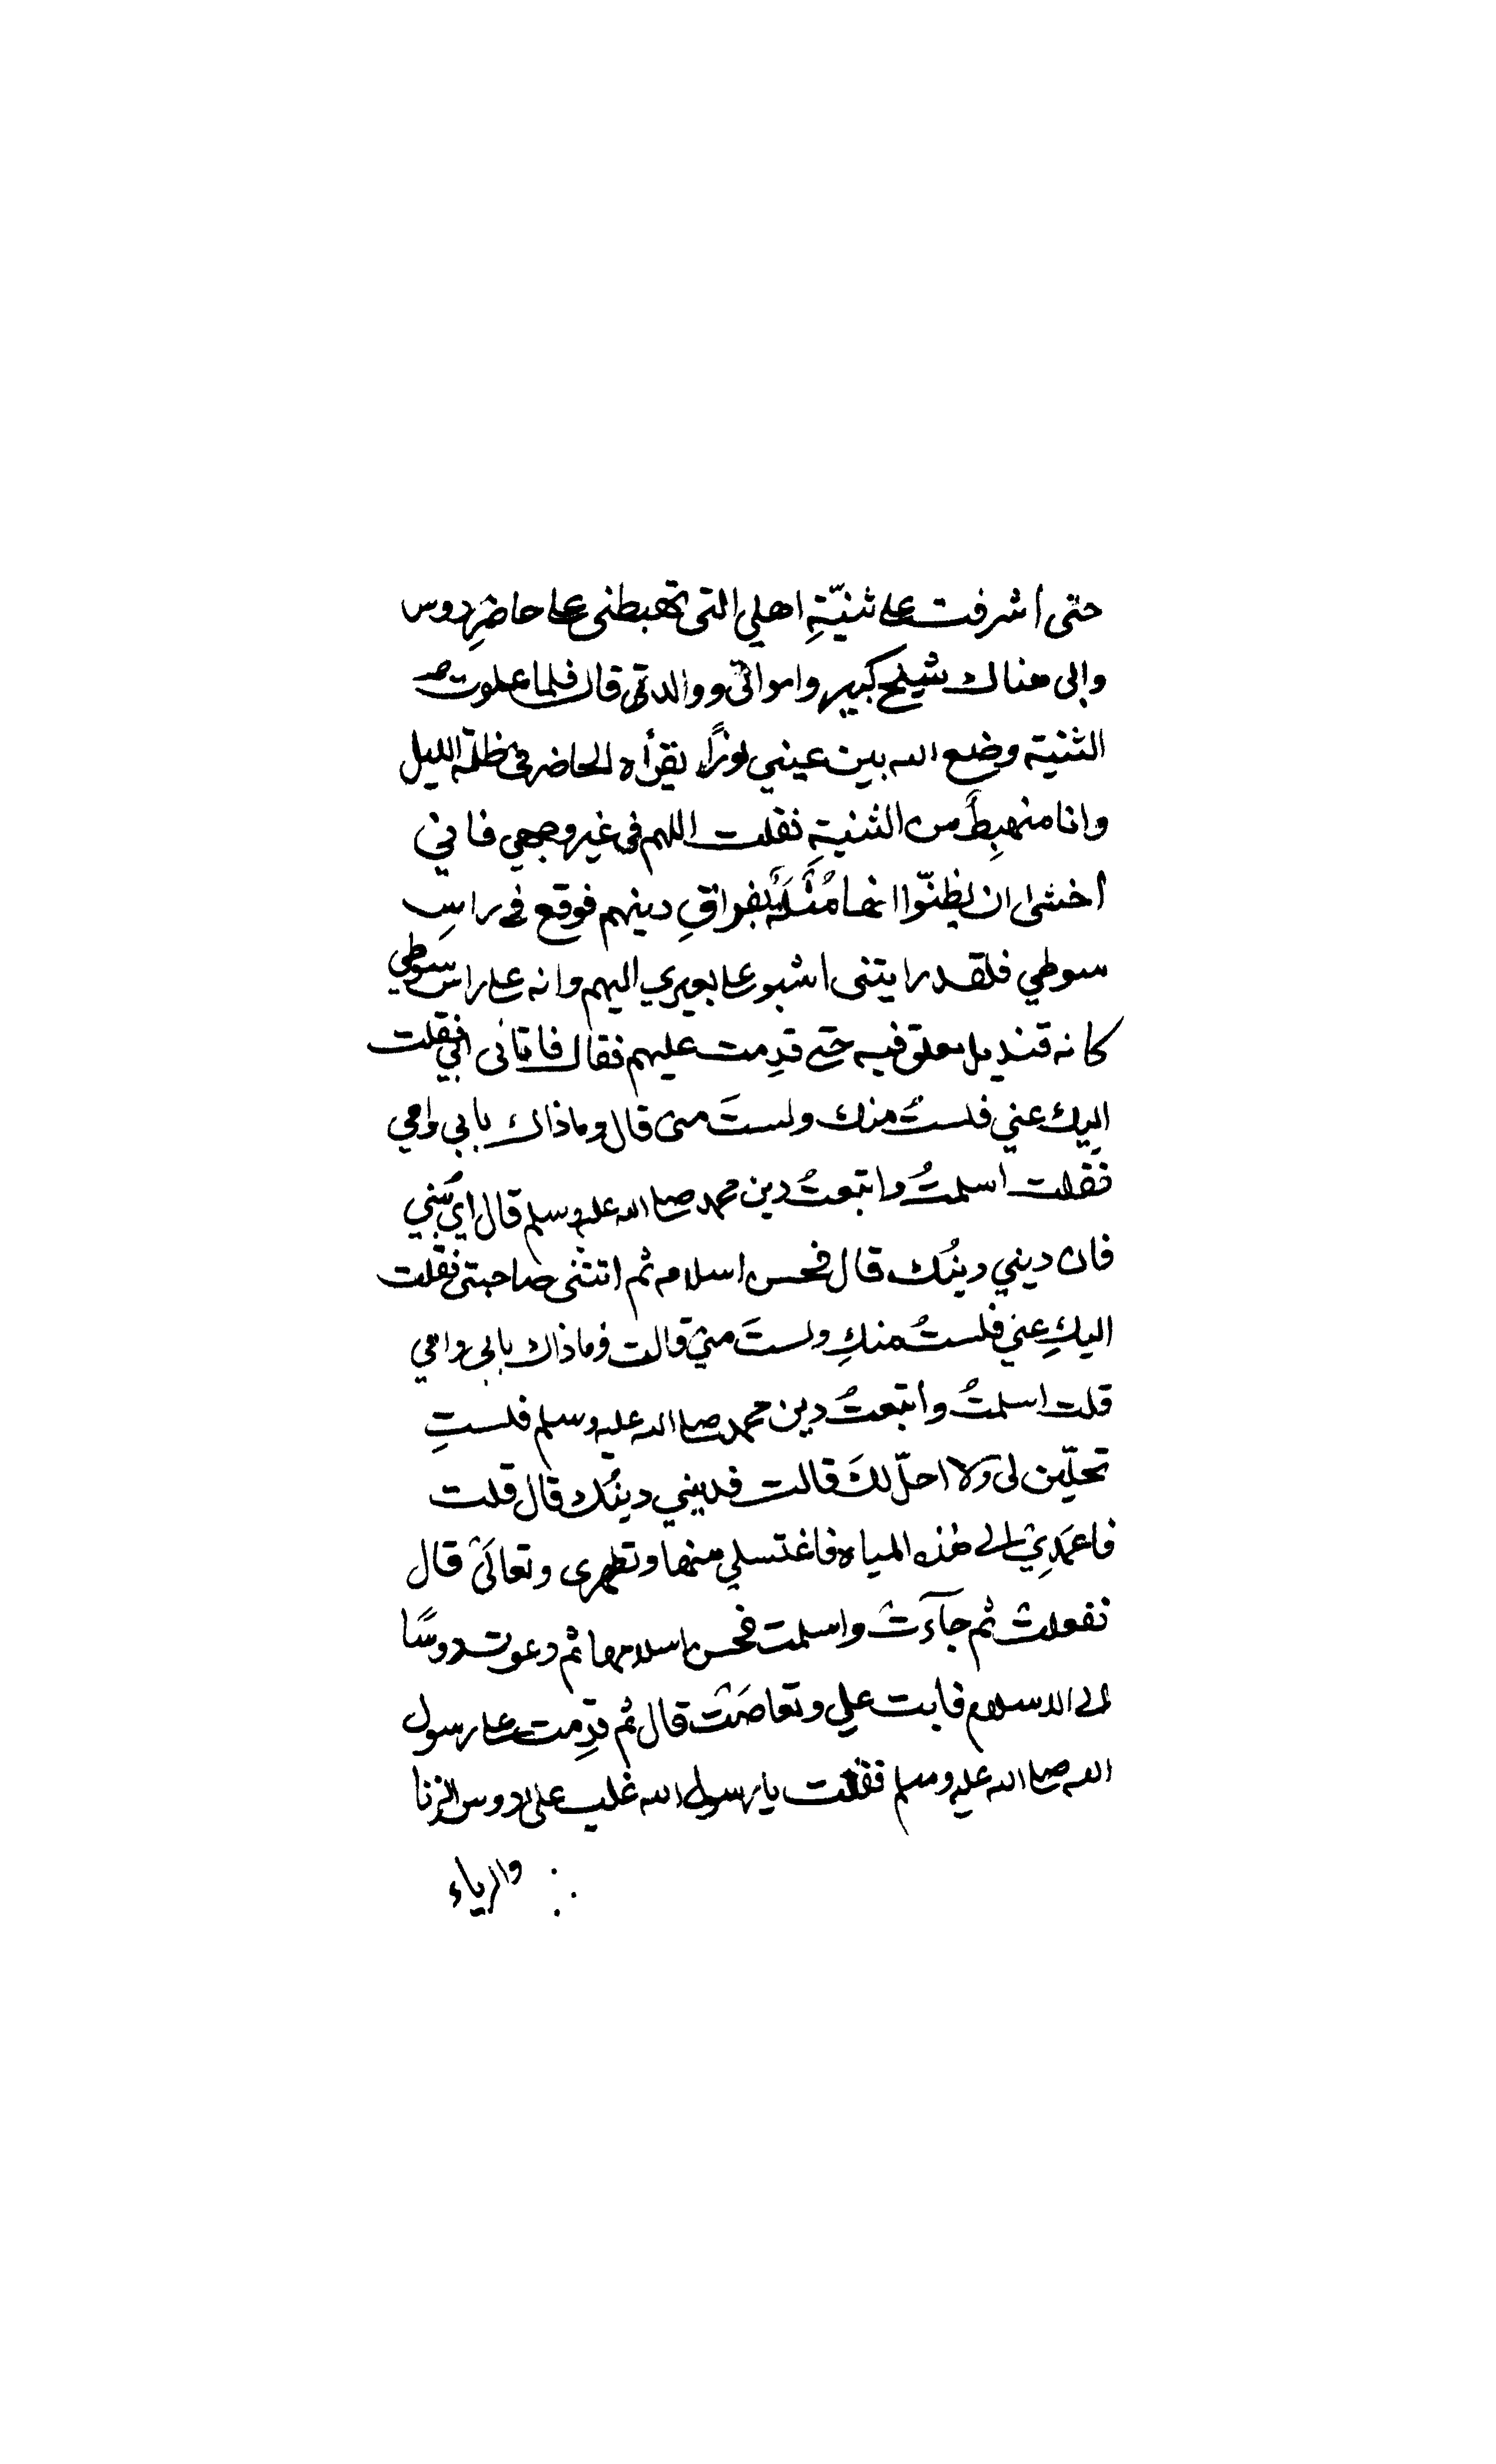 حتى أشرفت على ثنيّةِ اهلي التى تهبطنى على حاضرِ دوس
وابى هناك شيخ كبير وامراتى ووالدتى قال فلما علوت
الثنية وضع الله بين عيني نورًا يقرأه الحاضر فى ظلمة الليل
وانا منهبِطٌ من الثنيةِ فقلت اللهم فى غير وجهي فاني
أخشى ان يظنّوا انها مُثْلَةٌ بفراقِ دينهم فوقع في راسِ
سوطي فلقد رايتنى اسير على بعيري اليهم وانه على راس سوطي
كانه قنديل معلق فيه حتى قدِمت عليهم فقال فاتانى ابي فقلت
اليك عني فلستُ منك ولستَ منى قال وما ذاك بابي وامي
فقلت اسلمتُ واتبعتُ دين محمد صلى الله عليه وسلم قال اي بُني
فان ديني دينُك قال فحسن اسلامه ثم اتتنى صاحبتى فقلت
اليكِ عني فلستُ منكِ ولستَ مني قالت وما ذاك بابى وامي
قلت اسلمتُ وأتبعتُ دين محمد صلى الله عليه وسلم فلستِ
تحلّين لى ولا احلّ لكَ قالت فديني دينُك قال قلت
فاعمَدِي الى هذه المياه فاغتسلي منها وتطهرى وتعالَي قال
ففعلت ثم جآءَت واسلمت فحسن اسلامها ثم دعوت دوسًا
الى الاسلام فابت علي وتعاصَت قال ثم قدِمت على رسول
الله صلى الله عليه وسلم فقلت يا رسول الله غلب على دوس الزنا
والرياء